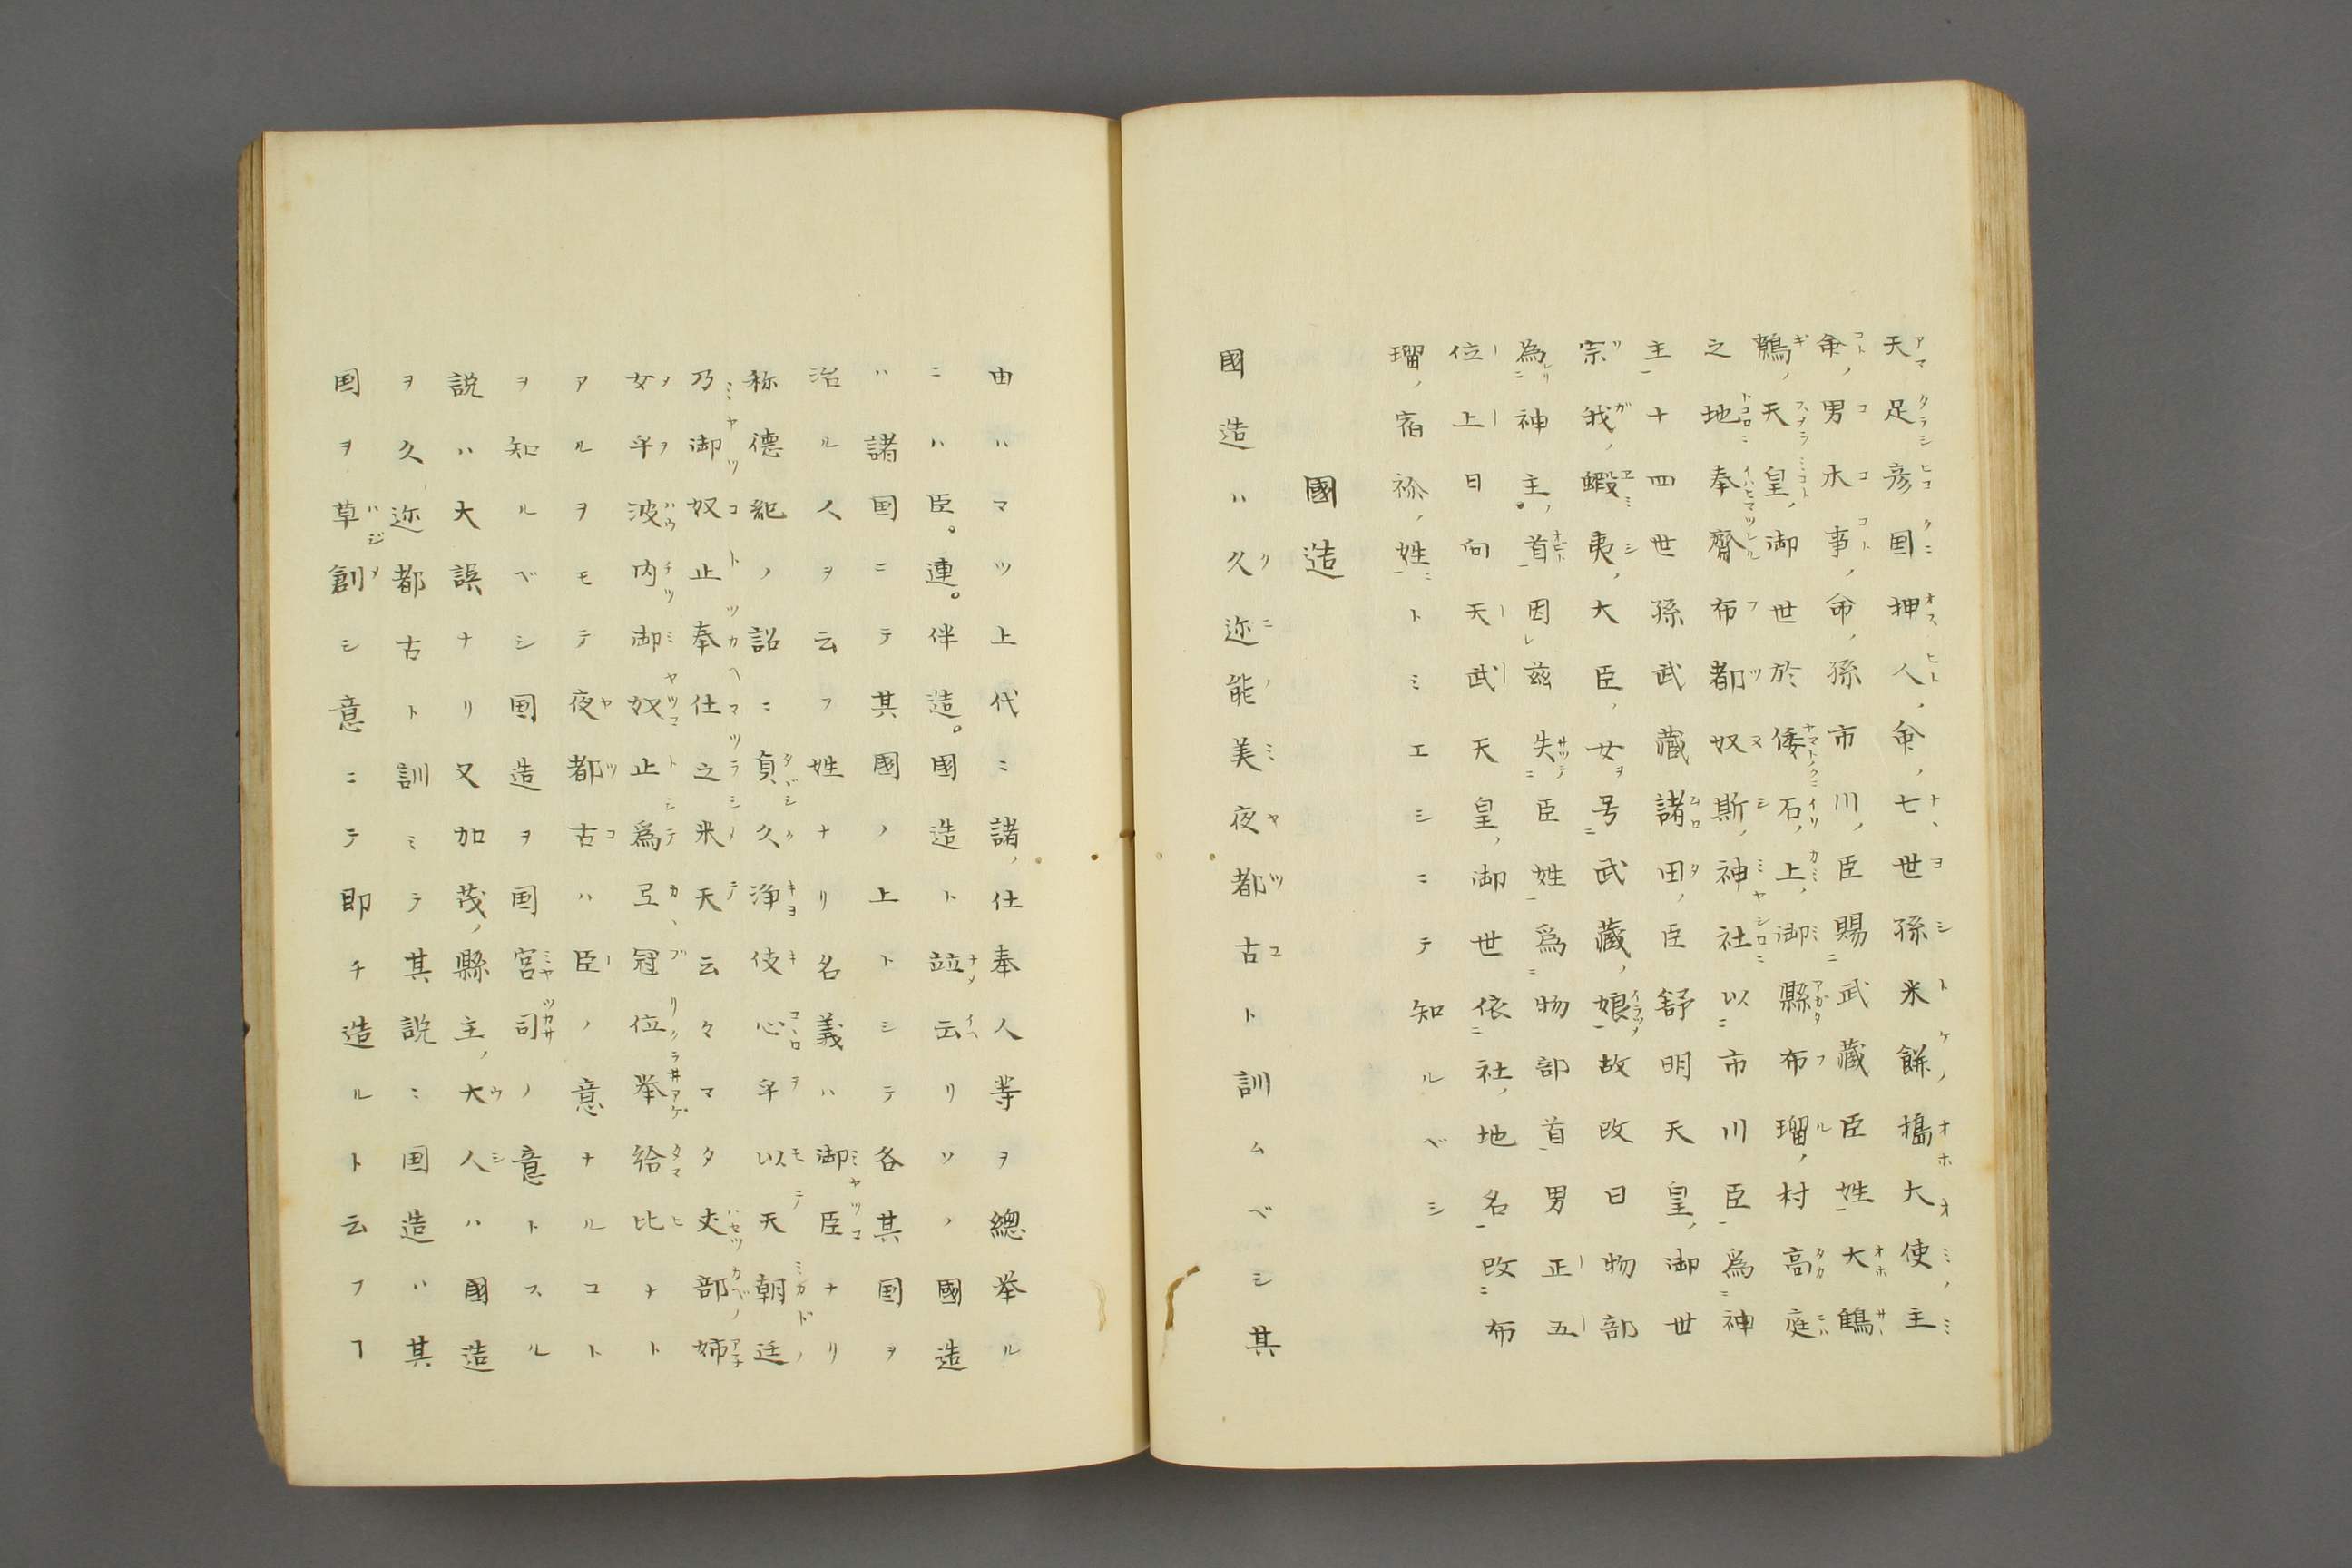 天足彦国押人命七世孫米餅搗大使主
命男木事命孫市川臣賜武蔵臣姓大鷦
鷯天皇御世於倭石上御縣布瑠村高庭
之地奉齋布都奴斯神社以市川臣為神
主十四世孫武藏諸田臣舒明天皇御世
宗我蝦夷大臣女号武藏娘故改曰物部
為神主。首因茲失臣姓爲物部首男正五
位上日向天武天皇御世依社地名改布
瑠宿祢姓トミエシニテ知ルベシ
國造
國造ハ久迩能美夜都古ト訓ムベシ其
由ハマツ上代ニ諸仕奉人等ヲ總挙ル
ニハ臣。連。伴造。國造ト竝云リソノ國造
ハ諸国ニテ其國ノ上トシテ各其国ヲ
治ル人ヲ云フ姓ナリ名義ハ御臣ナリ
称德紀ノ詔ニ貞久浄伎心乎以天朝廷
乃御奴止奉仕之米天云々マタ丈部姉
女乎波内御奴止為弖冠位挙給比ナト
アルヲモテ夜都古ハ臣ノ意ナルコト
ヲ知ルベシ国造ヲ国宮司ノ意トスル
説ハ大誤ナリ又加茂縣主大人ハ國造
ヲ久迩都古ト訓ミテ其説ニ国造ハ其
国ヲ草創シ意ニテ即チ造ルト云フヿ